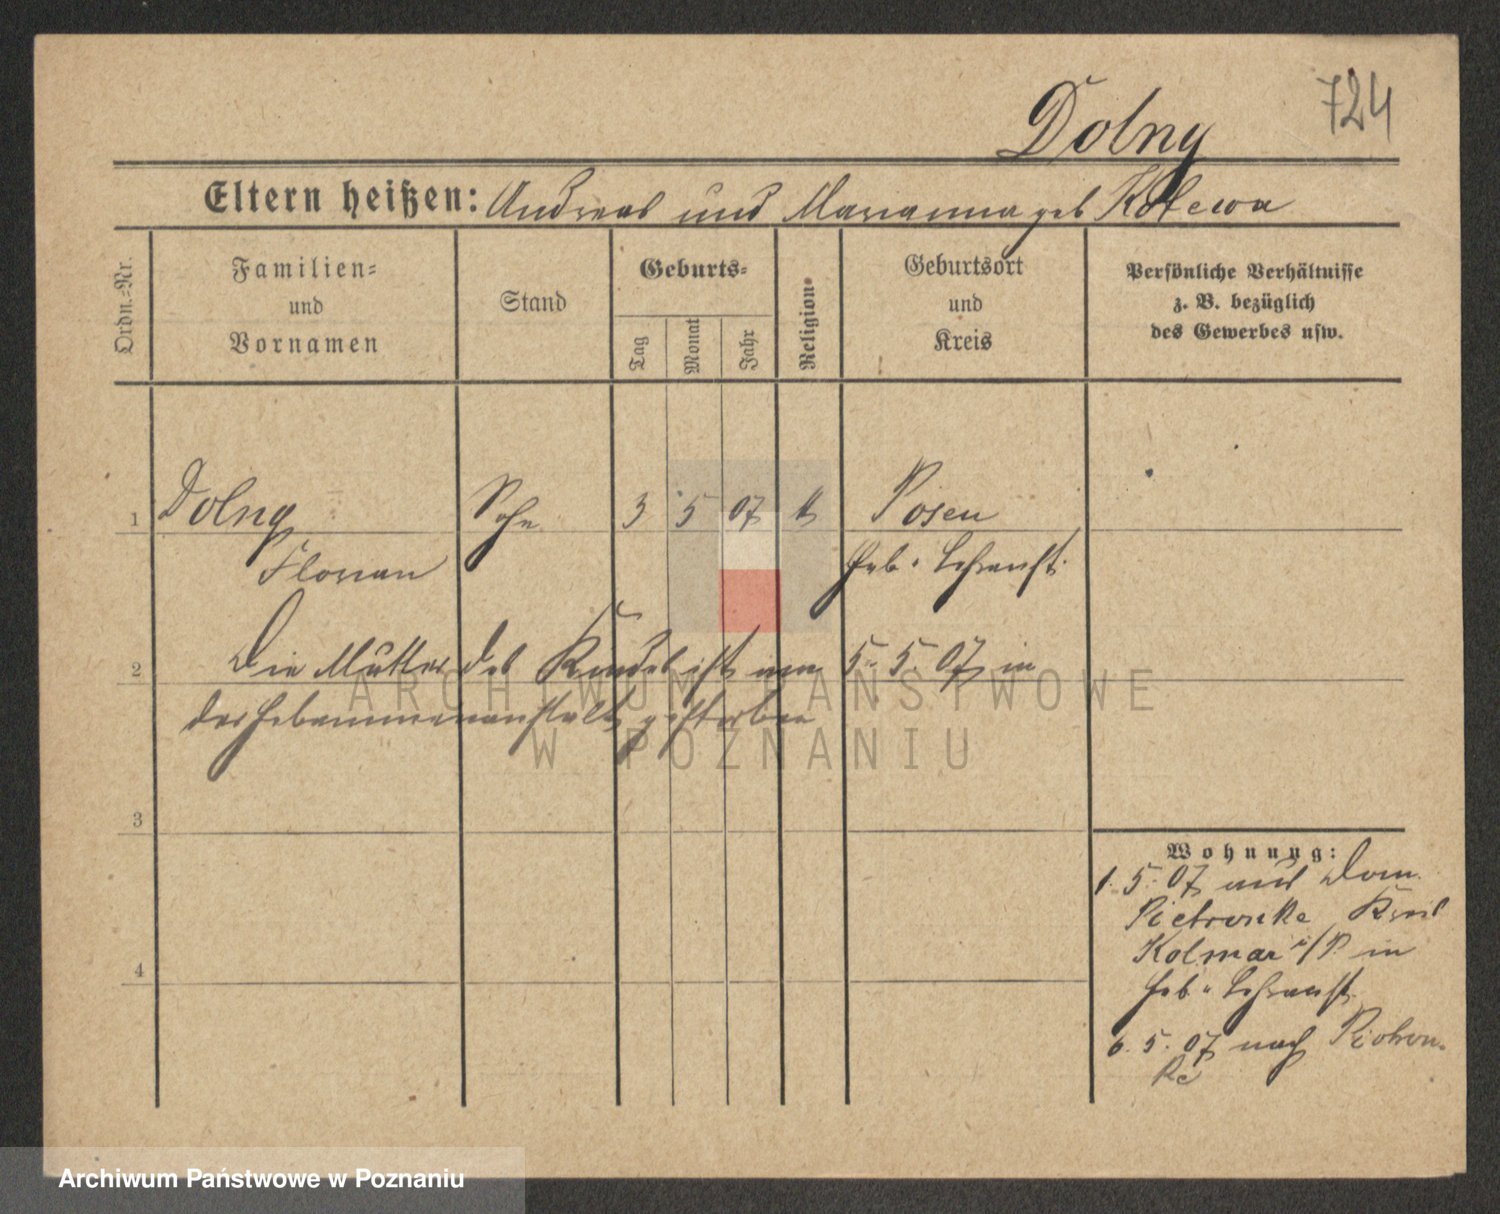 724
Dolny
Eltern heißen: Andreas und Marianna geb
Ordn.-Nr.
Familien-
und
Vornamen
Stand
Geburts-
Tag
Monat
Jahr
Religion
Geburtsort
und
Kreis
Persönliche Verhältnisse
z. B. bezüglich
des Gewerbes usw.
1 Dolny Sohn 3 5 07 k Posen
Florian Heb. Lehranst.
2 Die Mutter des Kindes ist am 5. 5. 07 in
der Hebammenanstalt gestorben
3
4
Wohnung:
1. 5. 07 aus Dom.
Pietronke Kreis
Kolmar i/P. in
Heb. Lehranst.
6. 5. 07 nach Pietron-
ke
ARCHIWUM PAŃSTWOWE
W POZNANIU
Archiwum Państwowe w Poznaniu